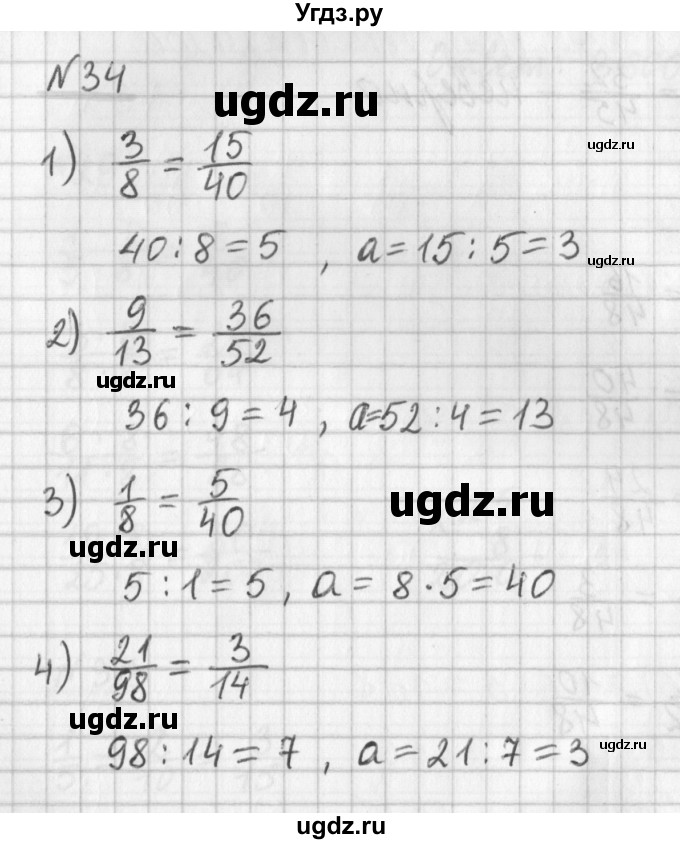 Угдз.ру
№34
ugdz.ru
1) 3/8 = 15/40
ugdz.ru
40 : 8 = 5 , a = 15 : 5 = 3
ugdz.ru
2) 9/13 = 36/52
ugdz.ru
36 : 9 = 4 , a = 52 : 4 = 13
3) 1/8 = 5/40
ugdz.ru
ugdz.ru
5 : 1 = 5 , a = 8 · 5 = 40
4) 21/98 = 3/14
ugdz.ru
98 : 14 = 7 , a = 21 : 7 = 3
ugdz.ru
ugdz.ru